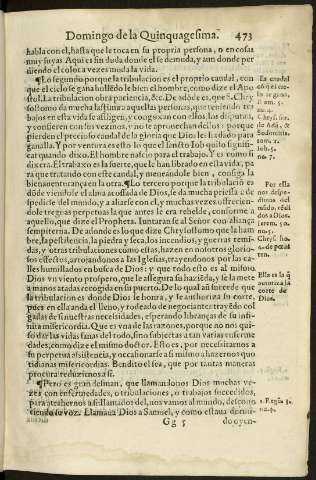 Domingo de la Quinquagesima. 473
habla con el, hasta que le toca en su propria persona, o en cosas
muy suyas Aqui es sin duda donde el se demuda, y aun donde per
diendo el color a vezes muda la vida.
¶Lo segundo porque la tribulacion es el proprio caudal, con
que el cielo se gana hollēdo el mundo, como dize el Apo
stol. La tribulacion obra paciencia, &c. De adōde es, que S. Chry
sostomo da mucha lastima a aquellas personas, que teniendo tra
bajos en esta vida se afligen, y congoxan con ellos, los disputan,
y consieren con los vezinos, y no se aprouechan dellos: porque
pierden el precioso caudal de la gloria que Dios les ha dado para
ganalla. Y por ventura esso es lo que el sancto Iob quiso signifi-
car quando dixo. El hombre nacio para el trabajo. Y es como si
dixera. El trabajo es la suerte, que le han librado en la vida, pa
ra que tratando con este caudal, y meneandole bien, consiga la
bienauenturança en la otra. ¶Lo tercero porque la tribulacion es
dōde viendose el alma acosada de Dios, se da mucha priessa a de
spedirse del mundo, y a aliarse con el, y muchas vezes ofrecien-
dole treguas perpetuas la que antes le era rebelde, conforme a
aquello, que dize el Propheta. Iuntaran se al Señor con aliança
sempiterna. De adonde es lo que dize Chrysostomo que la ham
bre, la pestilencia, la piedra y seca, los incendios, y guerras reñi
das, y otras tribulaciones como estas, hazen en nosotros glorio-
sos effectos, arrojandonos a las Iglesias, trayendonos por las ca-
lles humillados en busca de Dios: y que todo esto es al mismo
Dios vn viento prospero, que le assegura su hazienda, y se la mete
a manos atadas recogida en su puerto. De lo qual aun succede que
la tribulacion es donde Dios se honra, y se authoriza su corte,
pues en ella anda el lleno, y rodeado de negociantes: trayēdo col
gadas de si nuestras necessidades, esperando librancas de su infi
nita misericordia. Que es vna de las razones, porque no nos qui-
so dar las vidas sanas del todo, sino subjectas a tan varias enferme
dades, como dize el mismo doctor. Esto es, por necessitarnos a
su perpetua assistencia, y occasionarse a si mismo a hazernos quo
tidianas misericordias. Bendito el sea, que por tantas maneras
procura reduzirnos a si.
¶Pero es gran desman, que llamandonos Dios muchas ve-
zes con enfermedades, o tribulaciones, o trabajos succedidos,
para atrahernos a si llamados del, nos vamos al mundo, descono
ciendo su voz. Llamaua Dios a Samuel, y como estaua dormi-
Gg 5 do oyen-
Es caudal
cō q̄ el cie
lo se gana.
Rom. 5.
nu. 4.
Iob. 5.
no. 7.
Por esta
nos des-
pedimos
del mūdo.
no. 5.
Ella es la q̄
autoriza la
corte de
Dios.
1. Regū 3.
nu. 4.